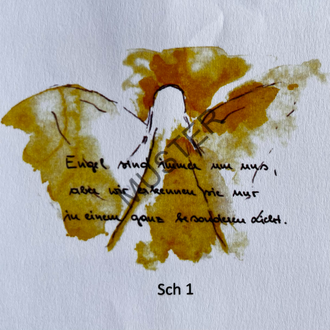 Engel sind immer um uns,
aber wir erkennen sie nur
in einem ganz besonderen Licht.
MUSTER
Sch 1